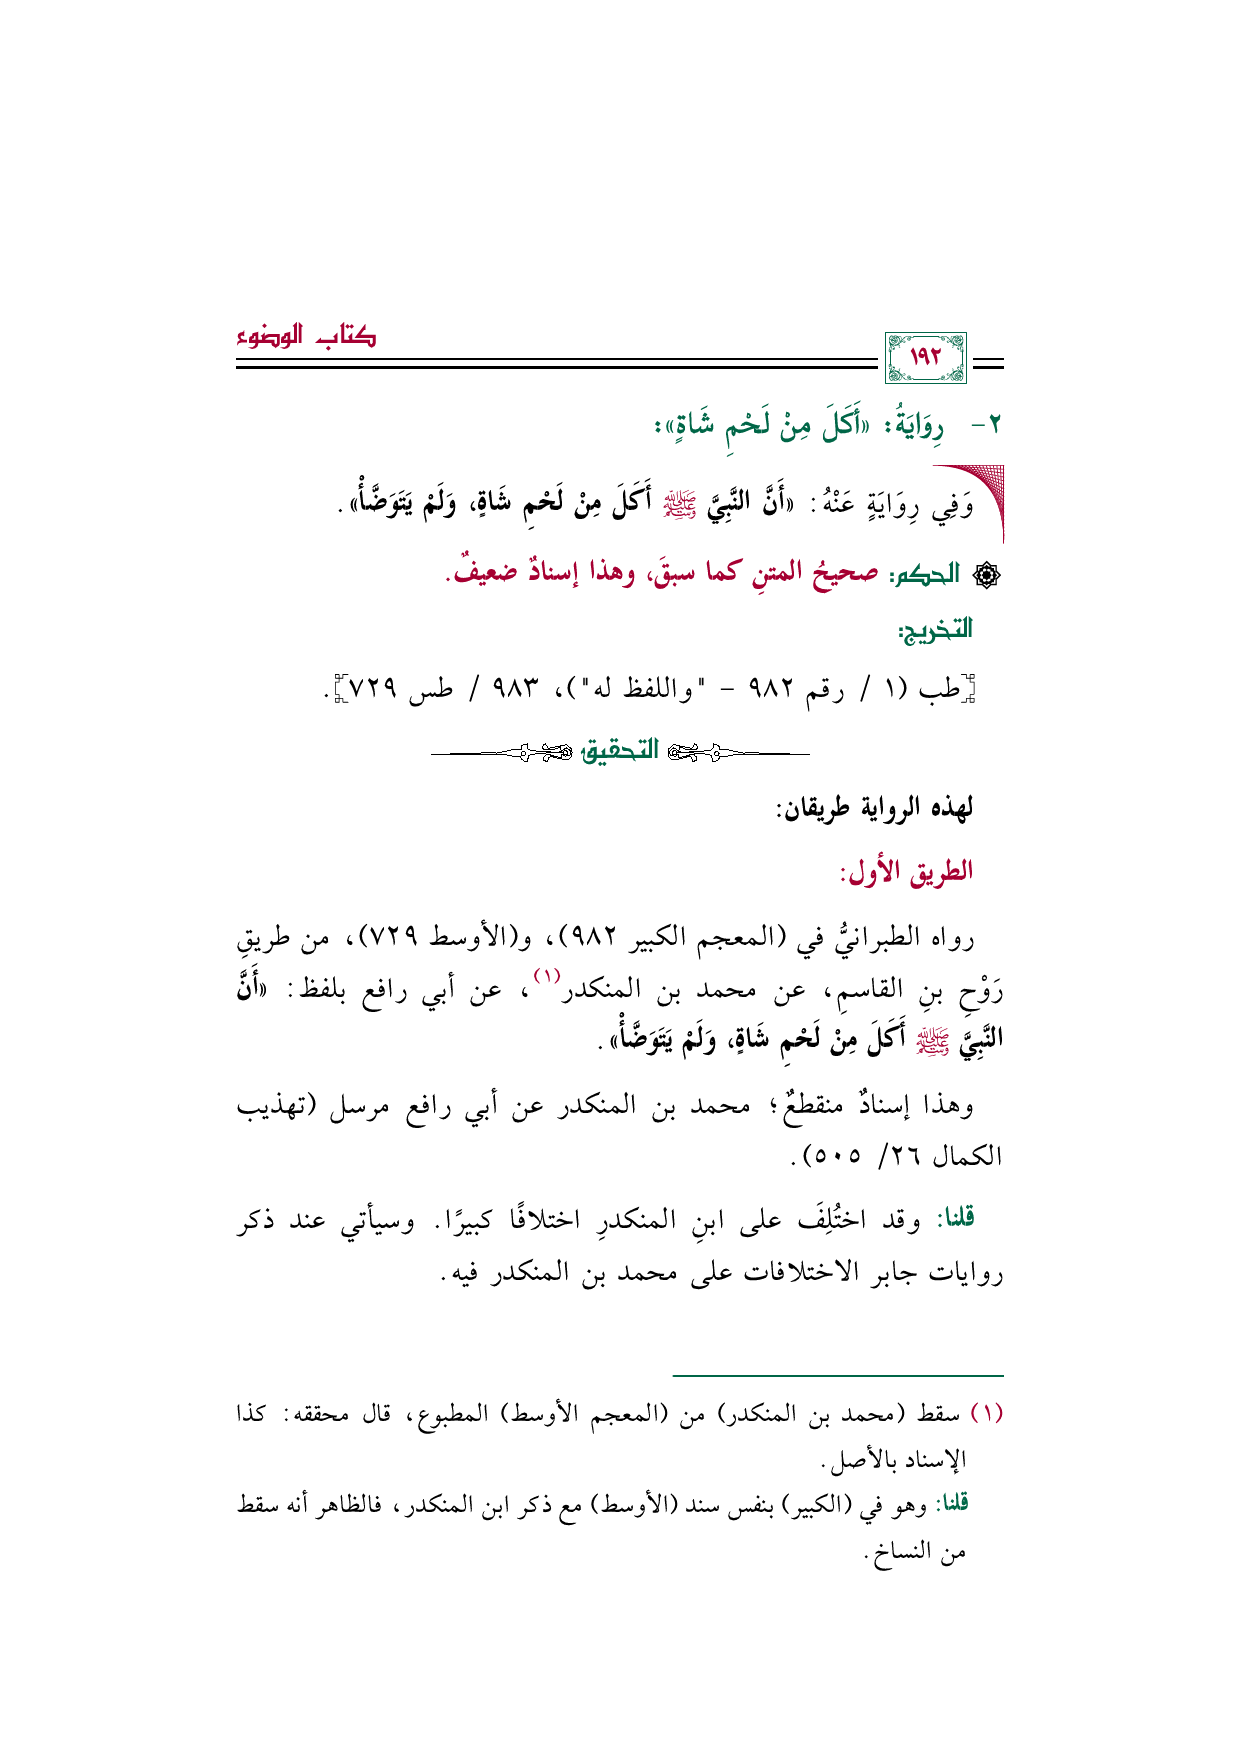 كتاب الوضوء
١٩٢
٢- رِوَايَةُ: «أَكَلَ مِنْ لَحْمِ شَاةٍ»:
وَفِي رِوَايَةٍ عَنْهُ: «أَنَّ النَّبِيَّ ﷺ أَكَلَ مِنْ لَحْمِ شَاةٍ، وَلَمْ يَتَوَضَّأْ».
الحكم: صحيحُ المتنِ كما سبقَ، وهذا إسنادٌ ضعيفٌ.
التخريج:
[طب (١ / رقم ٩٨٢ - "واللفظ له")، ٩٨٣ / طس ٧٢٩].
التحقيق
لهذه الرواية طريقان:
الطريق الأول:
رواه الطبرانيُّ في (المعجم الكبير ٩٨٢)، و(الأوسط ٧٢٩)، من طريقِ
رَوْحِ بنِ القاسمِ، عن محمد بن المنكدر(١)، عن أبي رافع بلفظ: «أَنَّ
النَّبِيَّ ﷺ أَكَلَ مِنْ لَحْمِ شَاةٍ، وَلَمْ يَتَوَضَّأْ».
وهذا إسنادٌ منقطعٌ؛ محمد بن المنكدر عن أبي رافع مرسل (تهذيب
الكمال ٢٦/ ٥٠٥).
قلنا: وقد اختُلِفَ على ابنِ المنكدرِ اختلافًا كبيرًا. وسيأتي عند ذكر
روايات جابر الاختلافات على محمد بن المنكدر فيه.
(١) سقط (محمد بن المنكدر) من (المعجم الأوسط) المطبوع، قال محققه: كذا
الإسناد بالأصل.
قلنا: وهو في (الكبير) بنفس سند (الأوسط) مع ذكر ابن المنكدر، فالظاهر أنه سقط
من النساخ.